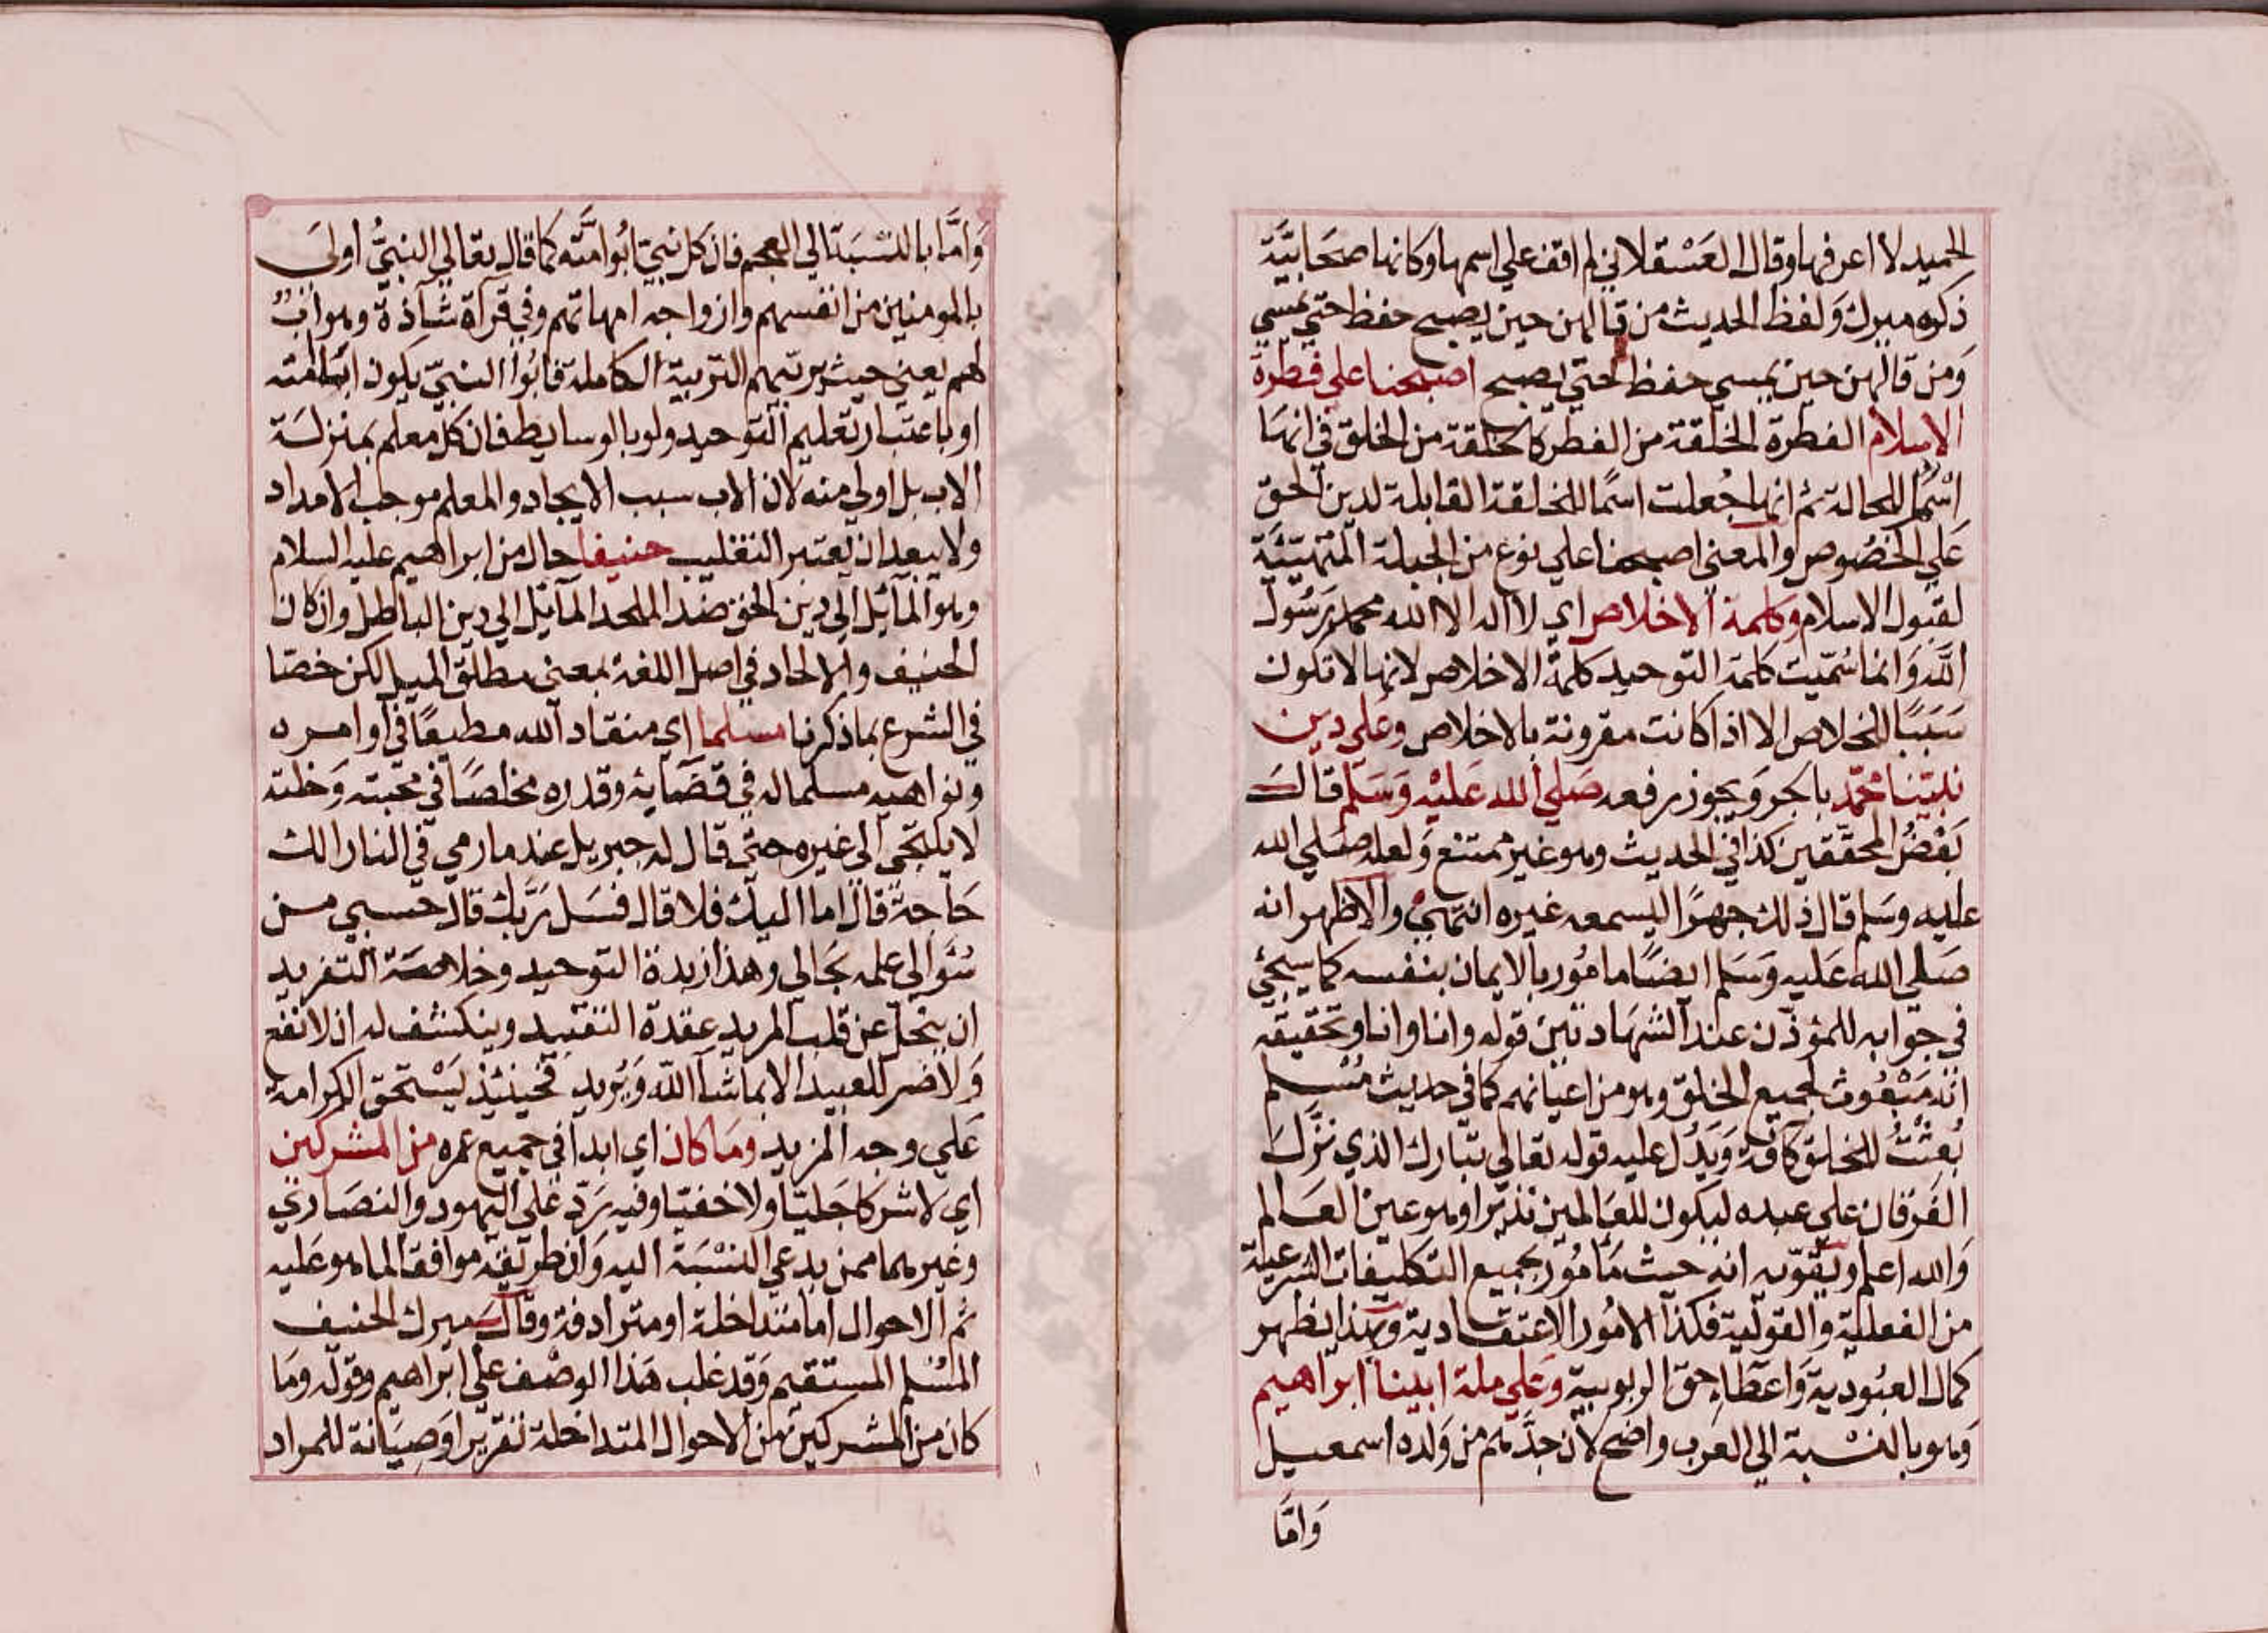 الحميد لا اعرفها وقال العَسْقلاني لم اقف علي اسمها وكانها صحَابيَّة
ذكره ميرك وَلفظ الحديث من قالهن حين يصبح حفظ حتي يمسي
وَمن قالهن حين يمسي حفظ حتي يصبح اصبحنا علي فطرة
الاسلام الفطرة الخلقة من الفطر كالخلقة من الخلق في انها
اسْمٌ للحالة ثم انها جُعلت اسمًا للخلقة القابلة لدين الحق
عَلي الخصُوص والمعني اصبحنا علي نوع من الجبلة المتهيئة
لقبُول الاسلام وكلمة الاخلاص اي لا اله الا الله محمد رَسُول
اللّه وَانما سُمّيت كلمة التوحيد كلمة الاخلاص لانها لا تكون
سَبَبًا للخلاص الا اذا كانت مقرونة بالاخلاص وعَلي دين
نبيّنا محمّد بالجر وَيجوز رفعه صَلي الله عَليْه وَسَلّم قَالَ
بَعْضُ المحقّقين كذا في الحديث وهو غير ممتنع وَلعله صَلي الله
عليه وسَلم قال ذلك جهرًا ليسمعه غيره انتهيْ والاظهر انه
صَلي الله عَليه وَسَلم ايضًا مامُور بالايمان بنفسه كما سيجئ
في جوَابه للمؤذّن عند الشهَادتين قوله وانا وانا وتحقيقه
انّه مَبْعُوث لجميع الخلق وهو من اعيَانهم كما في حديث مُسْلم
بُعثْتُ للخلق كافة وَيَدُل عليه قوله تعَالي تبَارك الذي نزَّلَ
الفرقان علي عبده ليكون للعَالمين نذيرا وهو عين العَالم
وَالله اعلم وَيُقوّيه انه حيث مَامُور بجميع التكليفات الشرعية
من الفعلية والقولية فكذا الامُور الاعتقادية وَبهذا يظهر
كمال العبُودية وَاعطاء حق الربوبية وعَلي ملة ابينا ابراهيم
وَهو بالنسْبة الي العَرب واضح لان جدّهم من وَلده اسمعيل
وَامَّا
وَامَّا بالنسْبَة الي العجم فان كل نبيّ ابُو امّته كما قال تعَالي النبيُّ اولَي
بالمومنين من انفسهم وازواجه امهاتهم وفي قرآة شاذة وهو ابٌ
لهم يعني حيث يربّيهم التربية الكاملة فابُوا النبيّ يكون ابا لامته
او باعتبار تعليم التوحيد ولو بالوسايط فان كل معلم بمنزلة
الاب بل اولي منه لان الاب سبب الايجاد والمعلم موجب الامداد
ولا يبعد ان يُعتبر التغليب حنيفا حال من ابراهيم عليه السلام
وهو المائل الي دين الحق ضد الملحد المآئل الي دين الباطل وان كان
الحنيف والالحاد في اصل اللغة بمعني مطلق الميل لكن خصّا
في الشرع بما ذكرنا مسلما اي منقادا لله مطيعًا في اوامره
ونواهيه مسلما له في قضايه وقدره مخلصًا في محبته وَخلته
لا يلتجي الي غيره حتي قال له جبريل عند ما رمي في النار الك
حَاجة قال اما اليك فلا قال فسَل رَبّك قال حسبي من
سُؤالي علمه بحَالي وهذا زبدة التوحيد وخلاصة التفريد
ان ينحل عن قلب المريد عقدة التقييد وينكشف له ان لا نفع
وَلا ضر للعبيد الا بما شآ اللّه وَيُريد فحينئذ يَسْتحق الكرامة
عَلي وجه المزيد وَمَا كان اي ابدا في جميع عمره من المشركين
اي لا شركا جَليّا ولا خفيّا وفيه رَدّ علي اليهود والنصَاري
وغيرهما ممن يدعي النسْبَة اليه وَان طريقه موافقا لما هو عَليه
ثم الاحوال اما متداخلة او مترادفة وقال ميرك الحنيف
المسْلم المستقيم وَقد غلب هَذا الوصْف علي ابرَاهيم وقوله وَمَا
كان من المشركين من الاحوال المتداخلة تقريرا وَصِيَانة للمراد